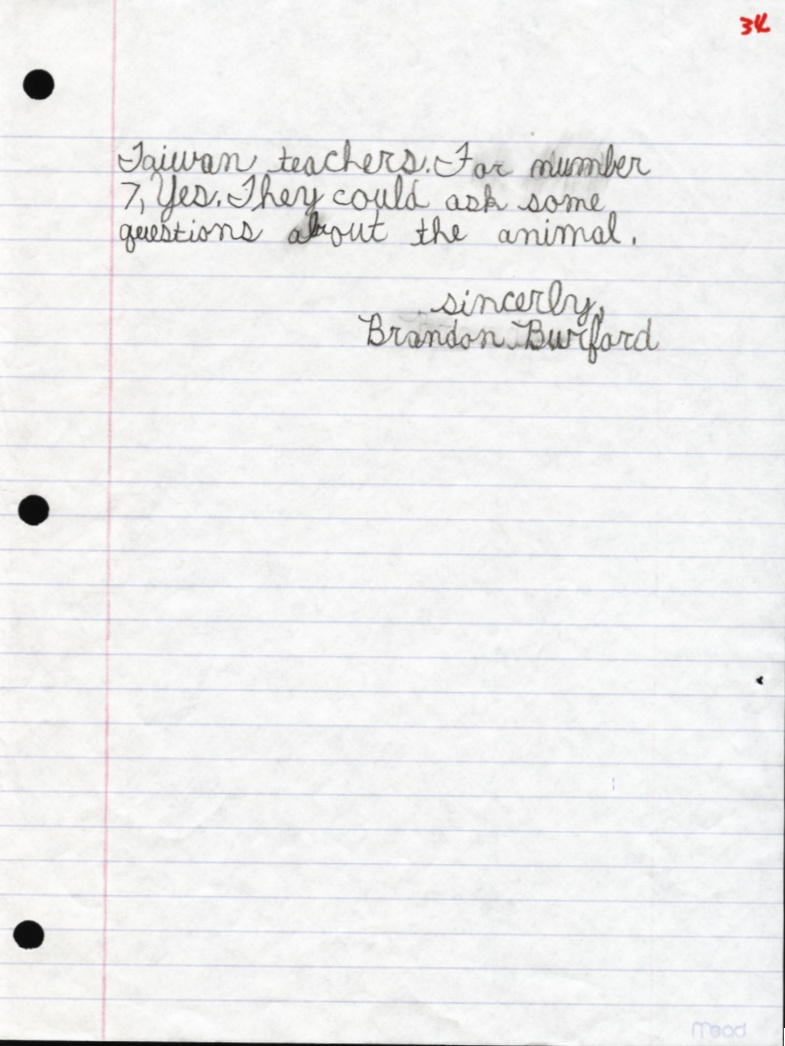 Taiwan teachers. For number
7, Yes. They could ask some
questions about the animal.
sincerly,
Brandon Burford
Mead